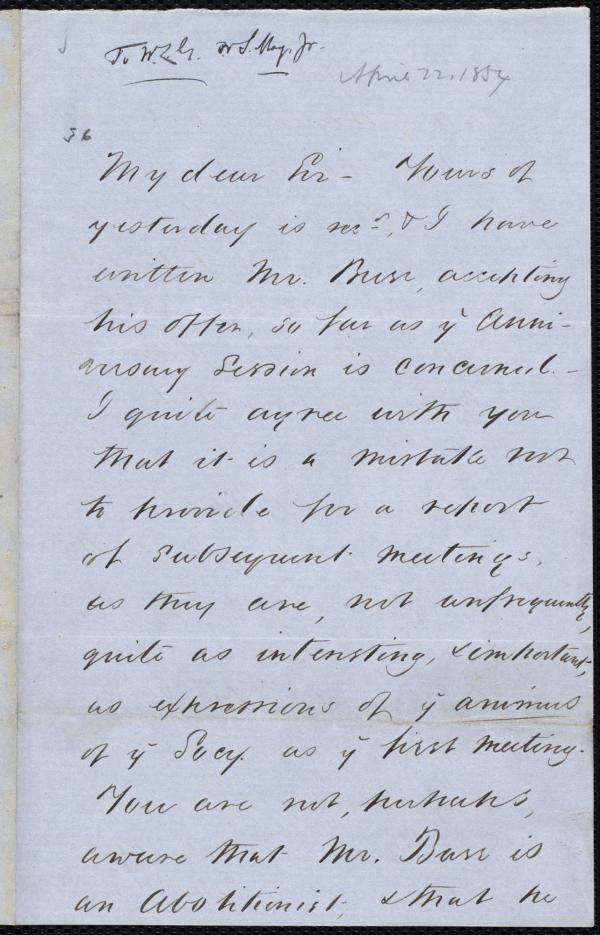 To W.L.G. or S. May, Jr.
April 22, 1854
36
My dear Sir - Yours of
yesterday is recd, & I have
written Mr. Burr, accepting
his offer, so far as ye Anni-
versary Session is concerned. -
I quite agree with you
that it is a mistake not
to provide for a report
of subsequent meetings,
as they are, not unfrequently,
quite as interesting, & important,
as expressions of ye animus
of ye Socy. as ye first meeting.
You are not, perhaps,
aware that Mr. Burr is
an Abolitionist, & that he